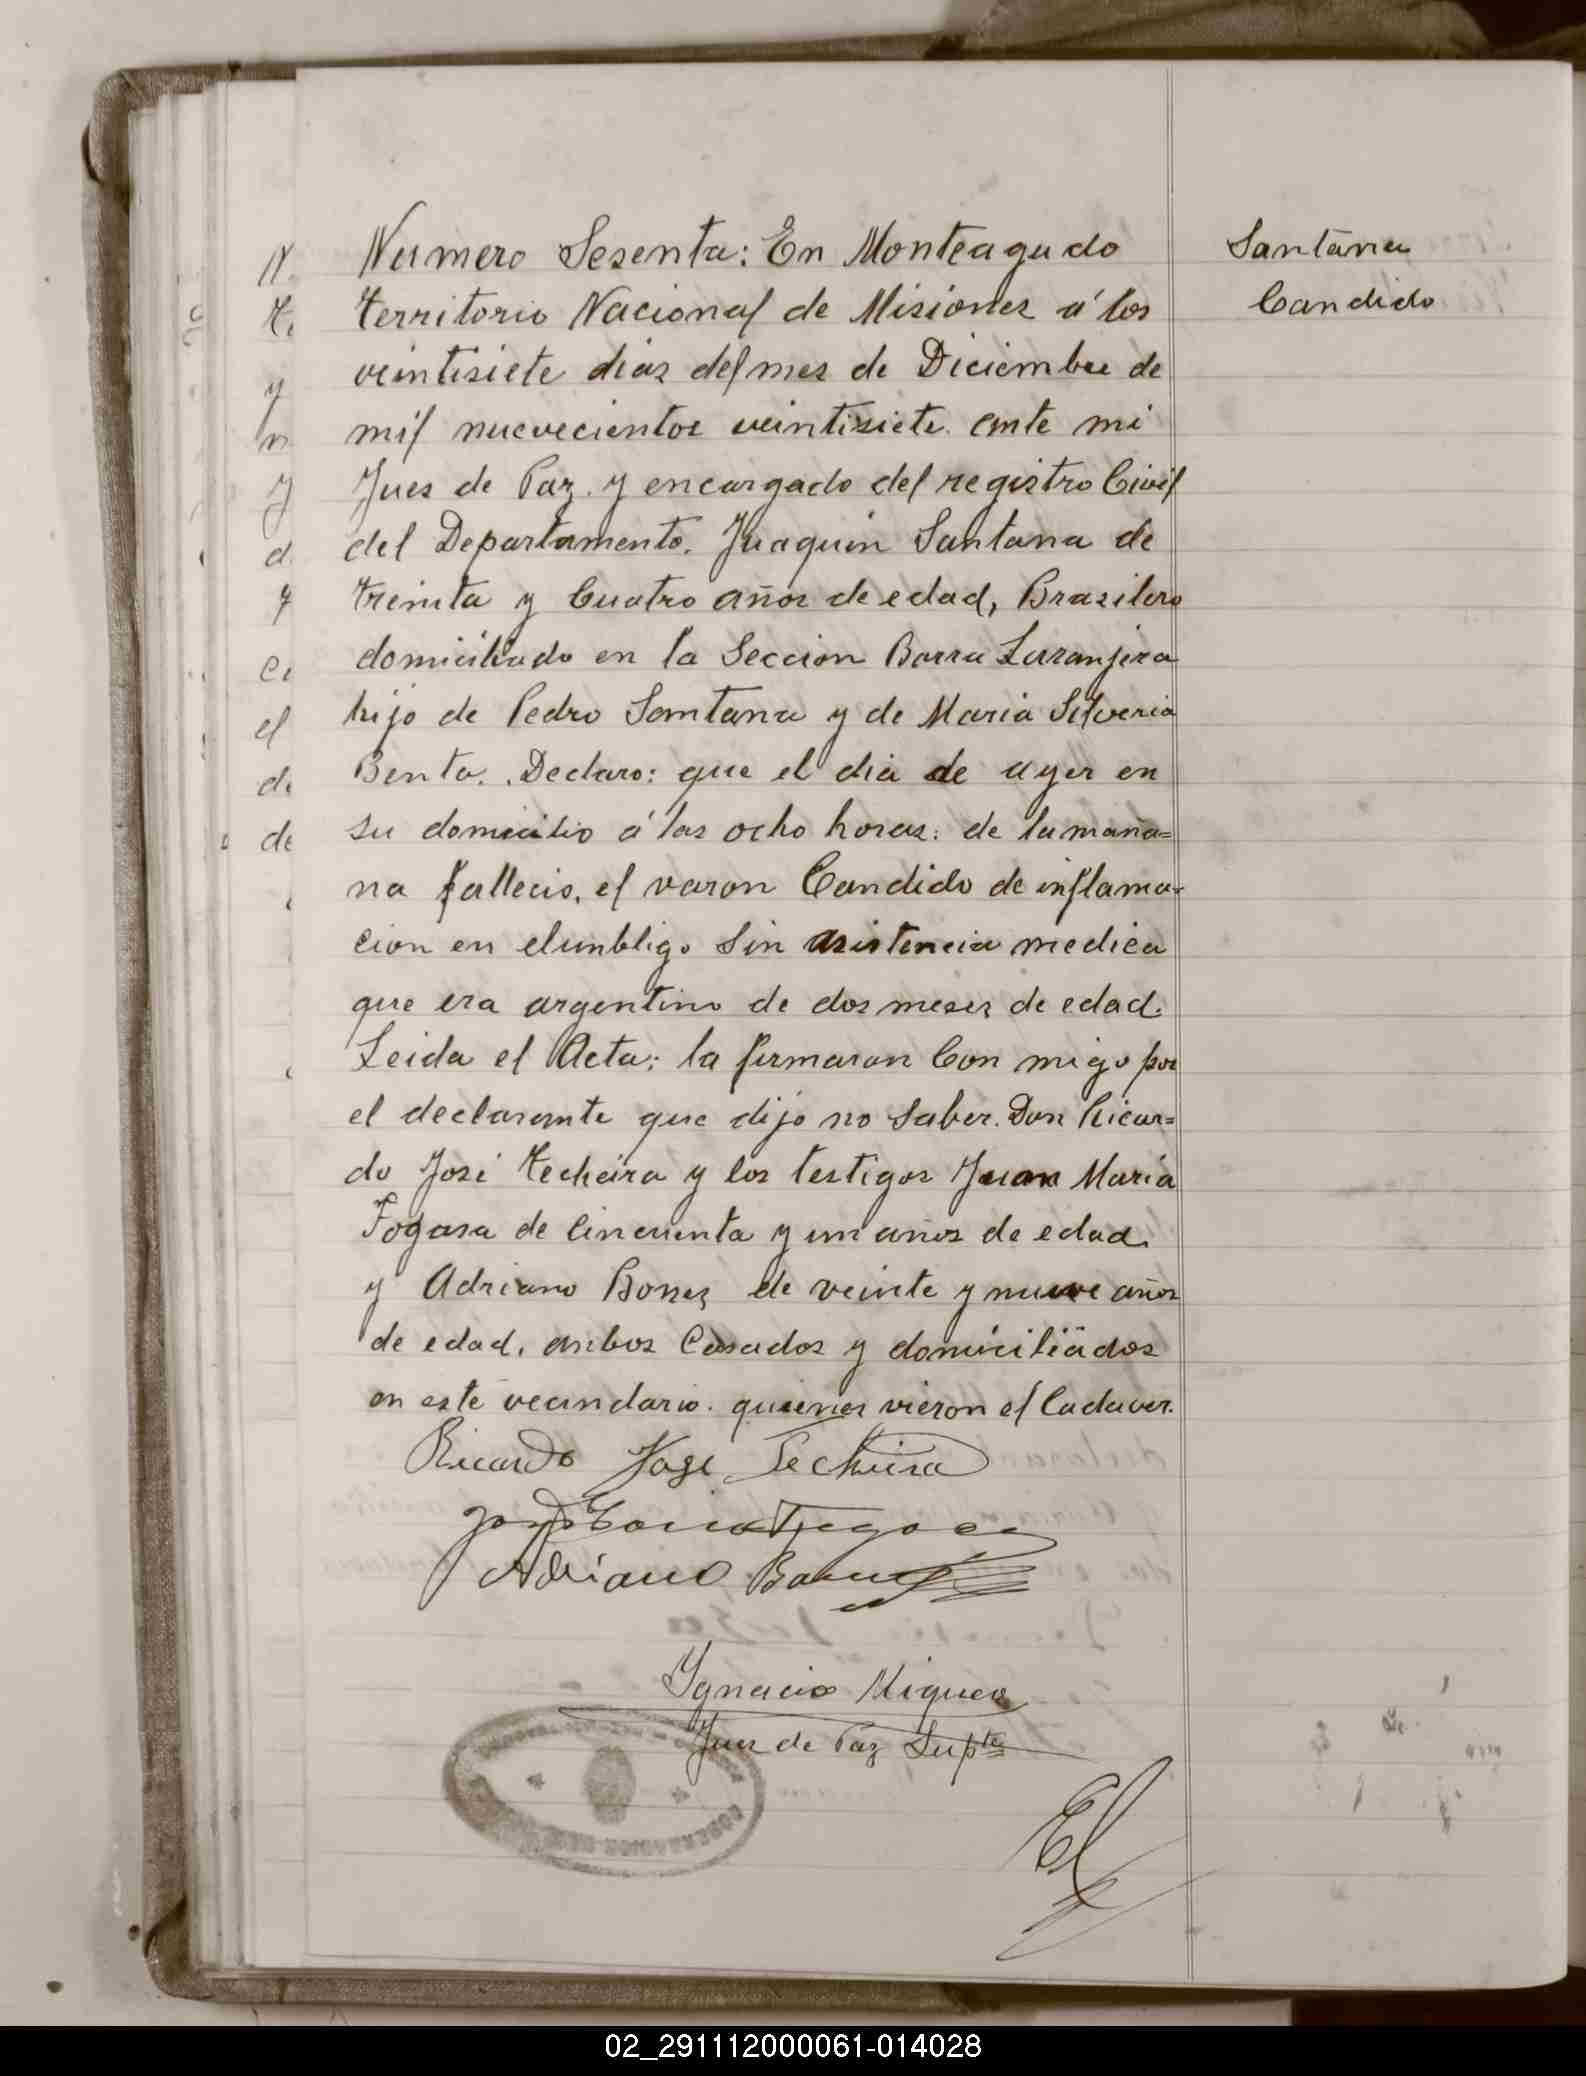 Numero Sesenta: En Monteagudo
territorio Nacional de Misiones á los
veintisiete dias del mes de Diciembre de
mil nuevecientos veintisiete. ante mi
Jues de Paz. y encargado del registro Civil
del Departamento. Juaquin Santana de
treinta y Cuatro años de edad, Brasilero
domiciliado en la Seccion Barra Laranjera
hijo de Pedro Santana y de Maria Silveria
Benta. Declaro: que el dia de ayer en
su domicilio á las ocho horas: de la maña=
na fallecio, el varon Candido de inflama=
cion en elunbligo Sin asistencia medica
que era argentino de dos meses de edad.
Leida el Acta; la firmaron Con migo por
el declarante que dijo no Saber. Don Ricar=
do José techeira y los testigos Juan Maria
Fogasa de Cincuenta y un años de edad.
y Adriano Bones de veinte y nueve años
de edad, anbos Casados y domiciliados
en este vecindario. quienes vieron el Cadaver.
Ricardo Jose Techeira
Adriano
Ygnacio Miguez
Jues de Paz Supte
Santana
Candido
N.
te
y
n
y
d
el
de
de
02_291112000061-014028